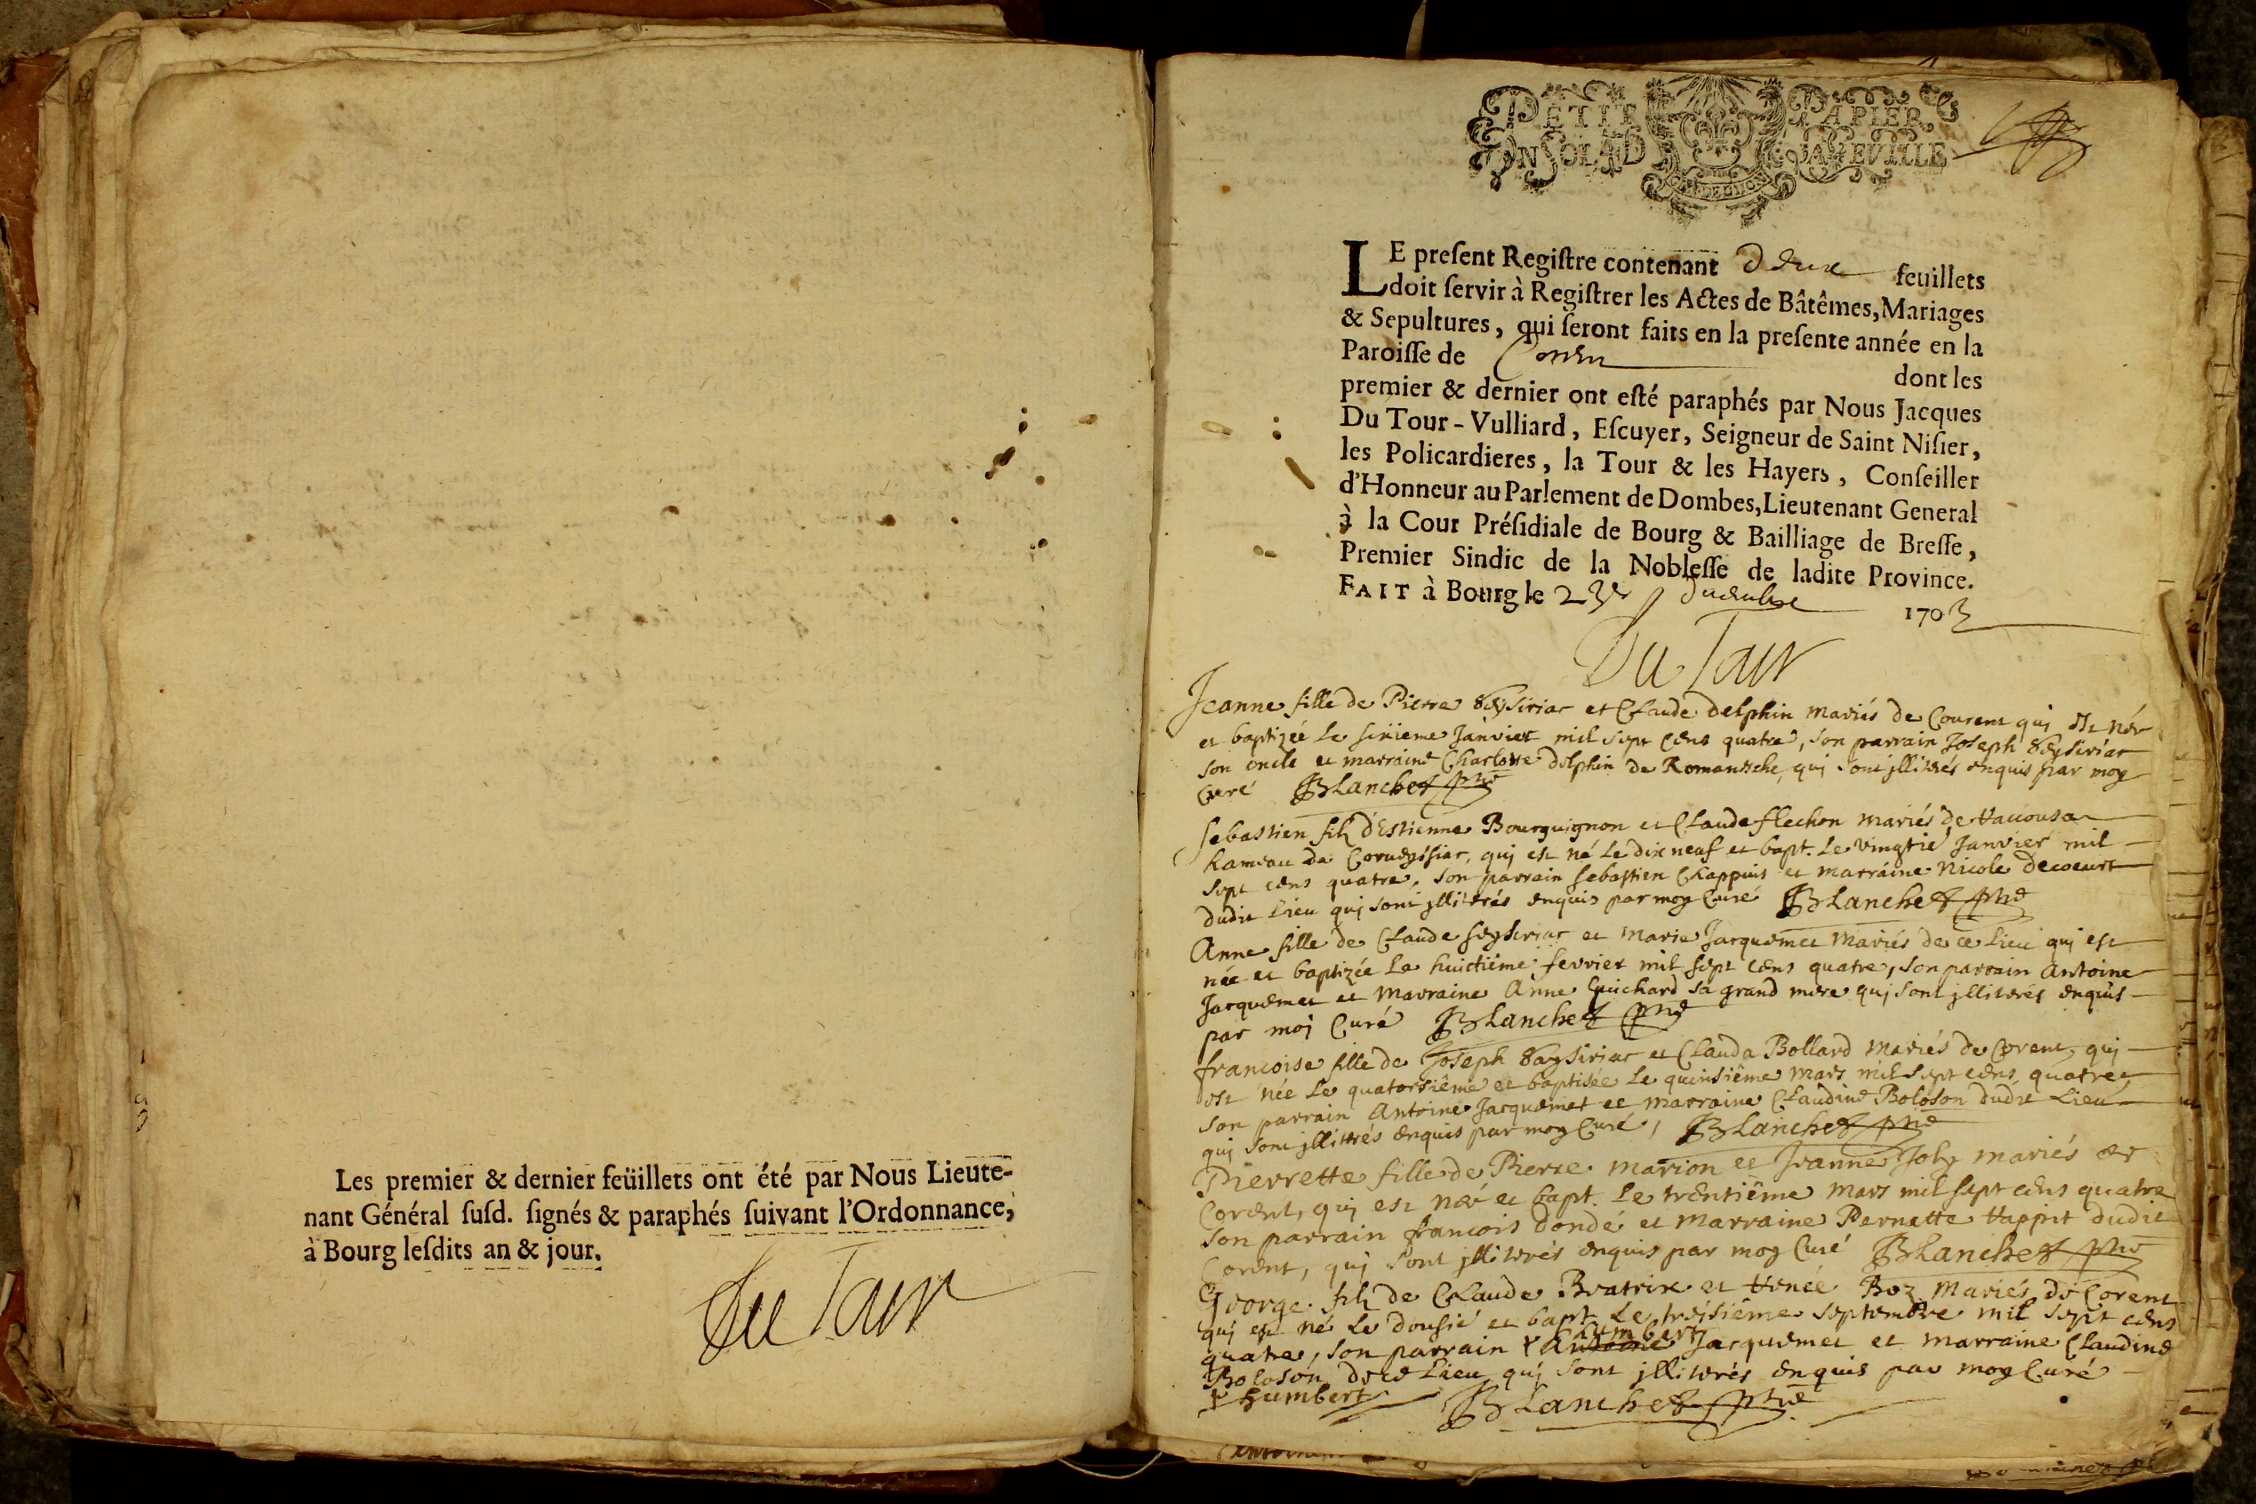 Les premier & dernier feüillets ont été par Nous Lieute-
nant Général susd. signés & paraphés suivant l'Ordonnance,
à Bourg lesdits an & jour.
Du Tour
PETIT PAPIER
EN SOL LAD LA FEVILLE
LE present Registre contenant deux feuillets
doit servir à Registrer les Actes de Bâtêmes, Mariages
& Sepultures, qui seront faits en la presente année en la
Paroisse de Coren dont les
premier & dernier ont esté paraphés par Nous Jacques
Du Tour-Vulliard, Escuyer, Seigneur de Saint Nisier,
les Policardieres, la Tour & les Hayers, Conseiller
d'Honneur au Parlement de Dombes, Lieutenant General
à la Cour Présidiale de Bourg & Bailliage de Bresse,
Premier Sindic de la Noblesse de ladite Province.
FAIT à Bourg le 23e 1703
Du Tour
Jeanne fille de Pierre Seysiriac et Claude delphin mariés de Courent qui est née
et baptizée le sixieme Janvier mil sept cens quatre, son parrain Joseph Seysiriac
son oncle et marraine Charlotte delphin de Romanèche, qui sont jllitérés enquis par moy
Curé Blanchet ptre
Sebastien filz d'Estienne Bourguignon et Claude flechon mariés de
hameau de Coruegssiac, qui est né le dix neuf et bapt. le vingtiē Janvier mil
sept cens quatre, son parrain Sebastien Chappuis et marraine Nicole decoeurt
dudit lieu qui sont jllitérés enquis par moy Curé Blanchet ptre
Anne fille de Claude Seysiriac et Marie Jacquemet mariés de ce lieu qui est
née et baptizée le huictième fevrier mil sept cens quatre, son parrain Antoine
Jacquemet et marraine Anne Guichard sa grand mere qui sont jllitérés enquis
par moj Curé Blanchet ptre
francoise fille de Joseph Seysiriac et Clauda Bollard mariés de Corent, qui
est née le quatorsième et baptisée le quinsième mars mil sept cens quatre
son parrain Antoine Jacquemet et marraine Claudine Boloson dudit lieu
qui sont jllitérés enquis par moy Curé, Blanchet ptre
Pierrette fille de Pierre marion et Jeanne Joly mariés de
Corent, qui est née et bapt. le trentième mars mil sept cens quatre
son parrain francois dondé et marraine Pernette dudit
Corent, qui sont jllitérés enquis par moy Curé Blanchet ptre
George filz de Claude Beatrix et Boz mariés de Corent
qui est né le dousiē et bapt. le treisième septembre mil sept cens
quatre, son parrain humbert Jacquemet et marraine Claudine
Boloson de ce lieu qui sont jllitérés enquis par moy Curé
humbert Blanchet ptre